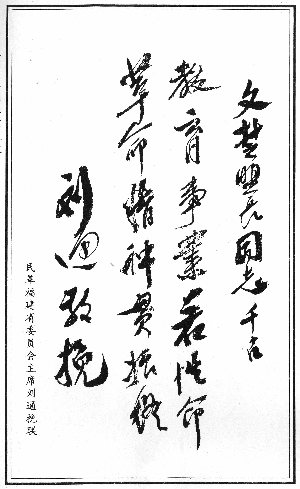 文楚同志千古
教育事業若性命
革命精神贯始终
刘通敬挽
民革福建省委员会主席刘通挽联